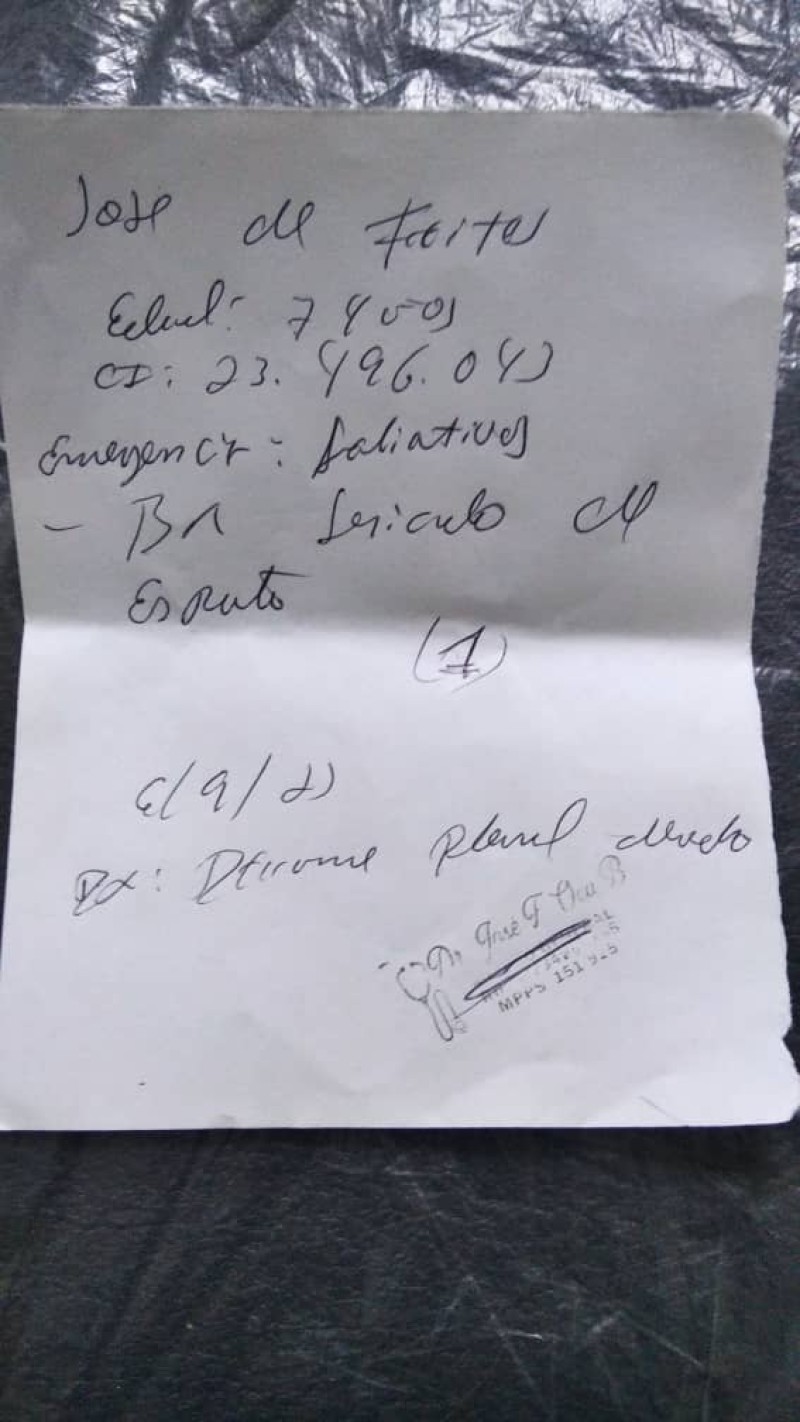 Jose de Freites
Edad: 74 años
CI: 23.496.043
Emergencia: Paliativos
- BK Seriado de
Esputo
(1)
Dx: Derrame pleural
Dr. José F
MPPS 151